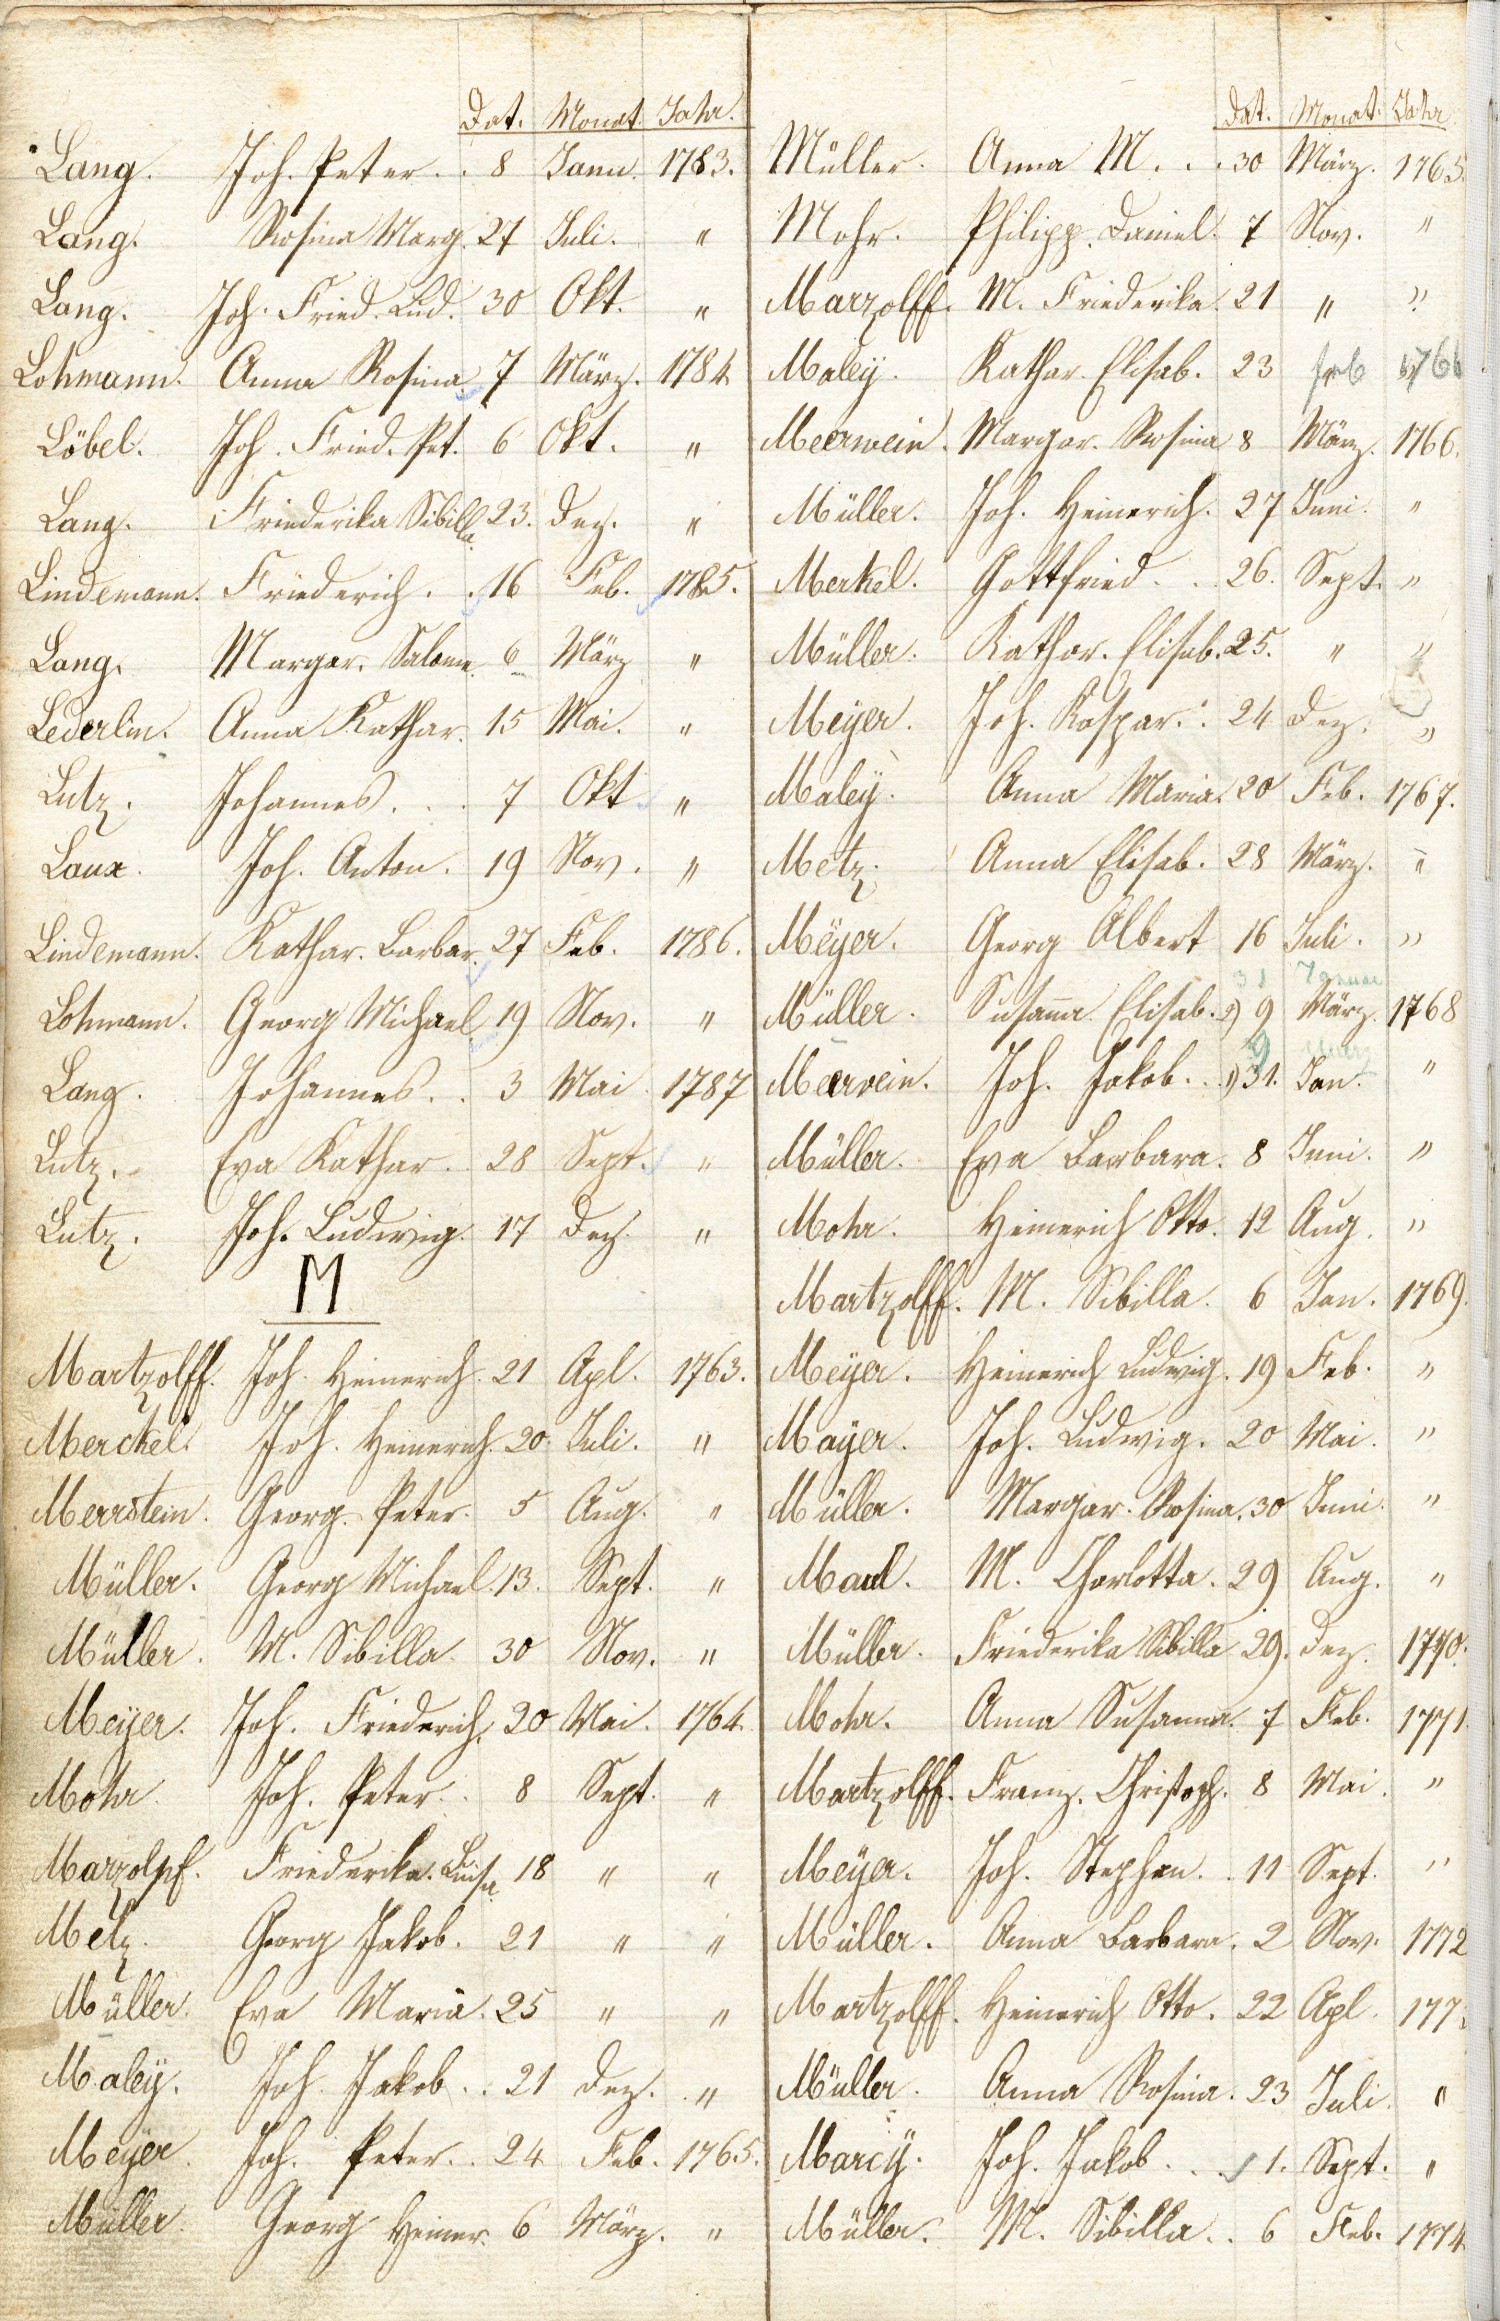 Dat. Monat. Jahr.
Lang. Joh. Peter. . 8 Jann. 1783.
Lang. Rosina Marg. 27 Juli. "
Lang. Joh. Fried. Lud. 30 Okt. "
Lohmann. Anna Rosina. 7 März. 1784
Löbel. Joh. Fried. Pet. 6 Okt. "
Lang. Friederika Sibilla. 23. Dez. "
Lindemann. Friederich. . 16 Feb. 1785.
Lang. Margar. Salome. 6 März "
Lederlin. Anna Kathar. 15 Mai. "
Lutz. Johannes. . . 7 Okt "
Laux. Joh. Anton. 19 Nov. "
Lindemann. Kathar. Barbar. 27 Feb. 1786.
Lohmann. Georg Michael 19 Nov. "
Lang. Johannes. . 3 Mai 1787
Lutz. Eva Kathar. 28 Sept. "
Lutz. Joh. Ludwig. 17 Dez. "
M
Martzolff. Joh. Heinerich. 21 Apl. 1763.
Merckel. Joh. Heinerich. 20. Juli. "
Merrstein. Georg. Peter. 5 Aug. "
Müller. Georg Michael. 13. Sept. "
Müller. M. Sibilla. 30 Nov. "
Meÿer. Joh. Friederich. 20 Mai. 1764.
Mohr. Joh. Peter. . 8 Sept. "
Marzolff. Friederika. Luisa. 18 " "
Metz. Georg Jakob. 21 " "
Müller. Eva Maria. 25 " "
Maleÿ. Joh. Jakob. . 21 Dez. "
Meÿer. Joh. Peter. . 24 Feb. 1765.
Müller. Georg Heiner. 6 März. "
Dat. Monat. Jahr
Müller. Anna M. . . 30 März. 1765.
Mohr. Philipp. Daniel. 7 Nov. "
Marzolff. M. Friederika. 21 " "
Maleÿ. Kathar. Elisab. 23 feb 1766
Meerwein. Margar. Rosina 8 März. 1766.
Müller. Joh. Heinerich. 27 Juni. "
Merkel. Gottfried. . . 26. Sept. "
Müller. Kathar. Elisab. 25. " "
Meÿer. Joh. Kaspar. . 24 Dez. "
Maleÿ. Anna Maria. 20 Feb. 1767.
Metz. Anna Elisab. 28 März. "
Meÿer. Georg Albert 16 Juli. "
31 Januar
Müller. Susanna Elisab. 2) 9 März. 1768
9 März
Meerwein. Joh. Jakob. . 1) 31. Jan. "
Müller. Eva Barbara. 8 Juni. "
Mohr. Heinerich Otto. 12 Aug. "
Martzolff. M. Sibilla. 6 Jan. 1769.
Meÿer. Heinerich Ludwig. 19 Feb. "
Mayer. Joh. Ludwig. 20 Mai. "
Müller. Margar. Rosina. 30 Juni. "
Maul. M. Charlotta. 29 Aug. "
Müller. Friederika Sibilla 29. Dez. 1770.
Mohr. Anna Susanna. 7 Feb. 1771.
Martzolff. Franz. Christoph. 8 Mai. "
Meÿer. Joh. Stephan. . 11 Sept. "
Müller. Anna Barbara. 2 Nov. 1772
Martzolff. Heinerich Otto. 22 Apl. 177
Müller. Anna Rosina. 23 Juli. "
Marcÿ. Joh. Jakob. . . 1. Sept. "
Müller. M. Sibilla. . 6 Feb. 1774.